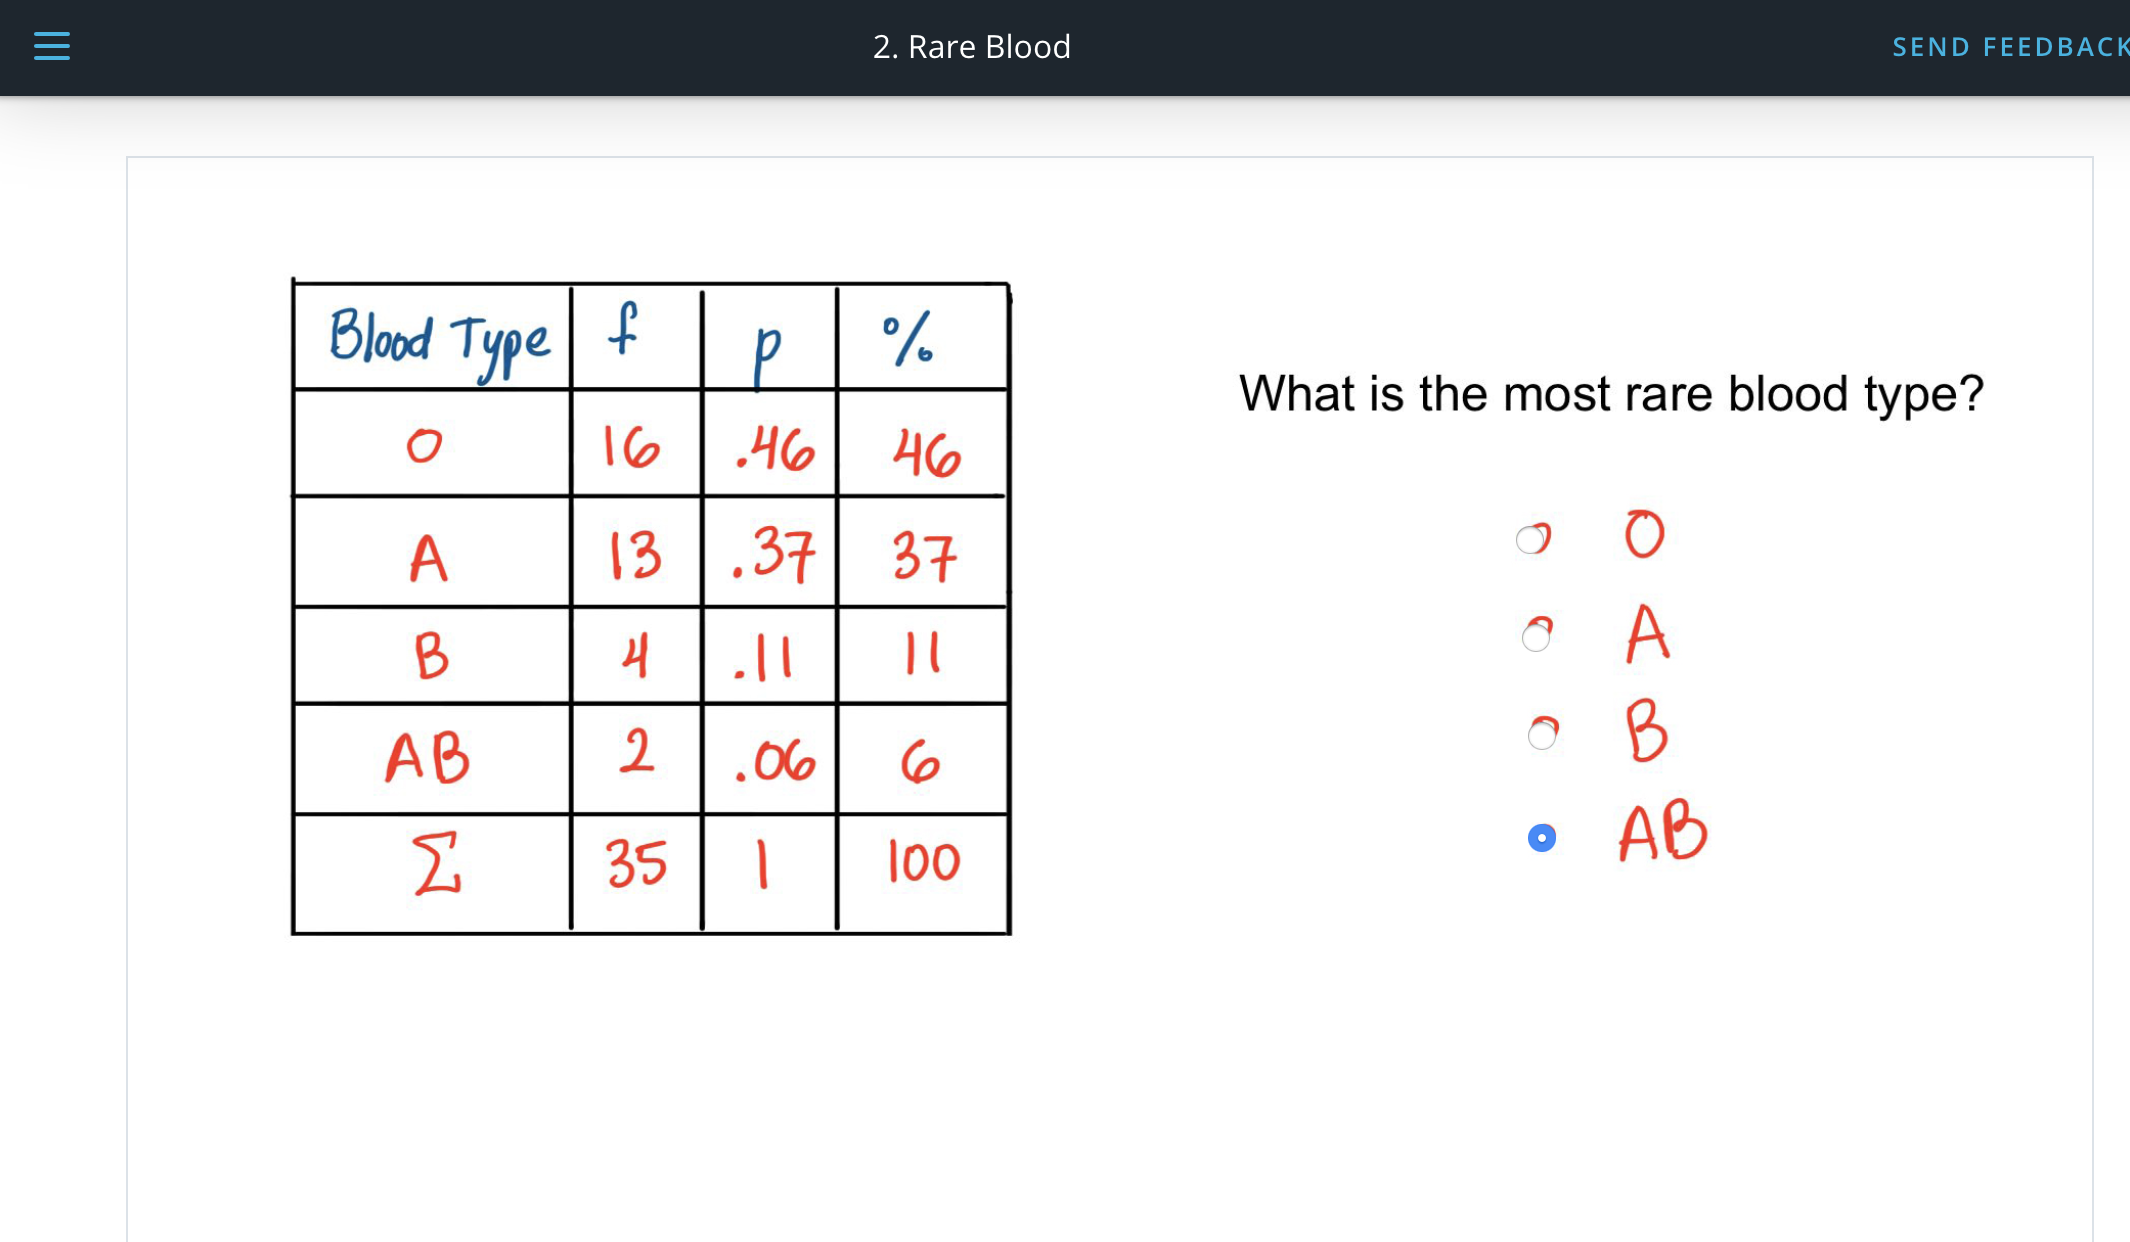 2. Rare Blood
SEND FEEDBACK
Blood Type f p %
O 16 .46 46
A 13 .37 37
B 4 .11 11
AB 2 .06 6
Σ 35 1 100
What is the most rare blood type?
O
A
B
AB